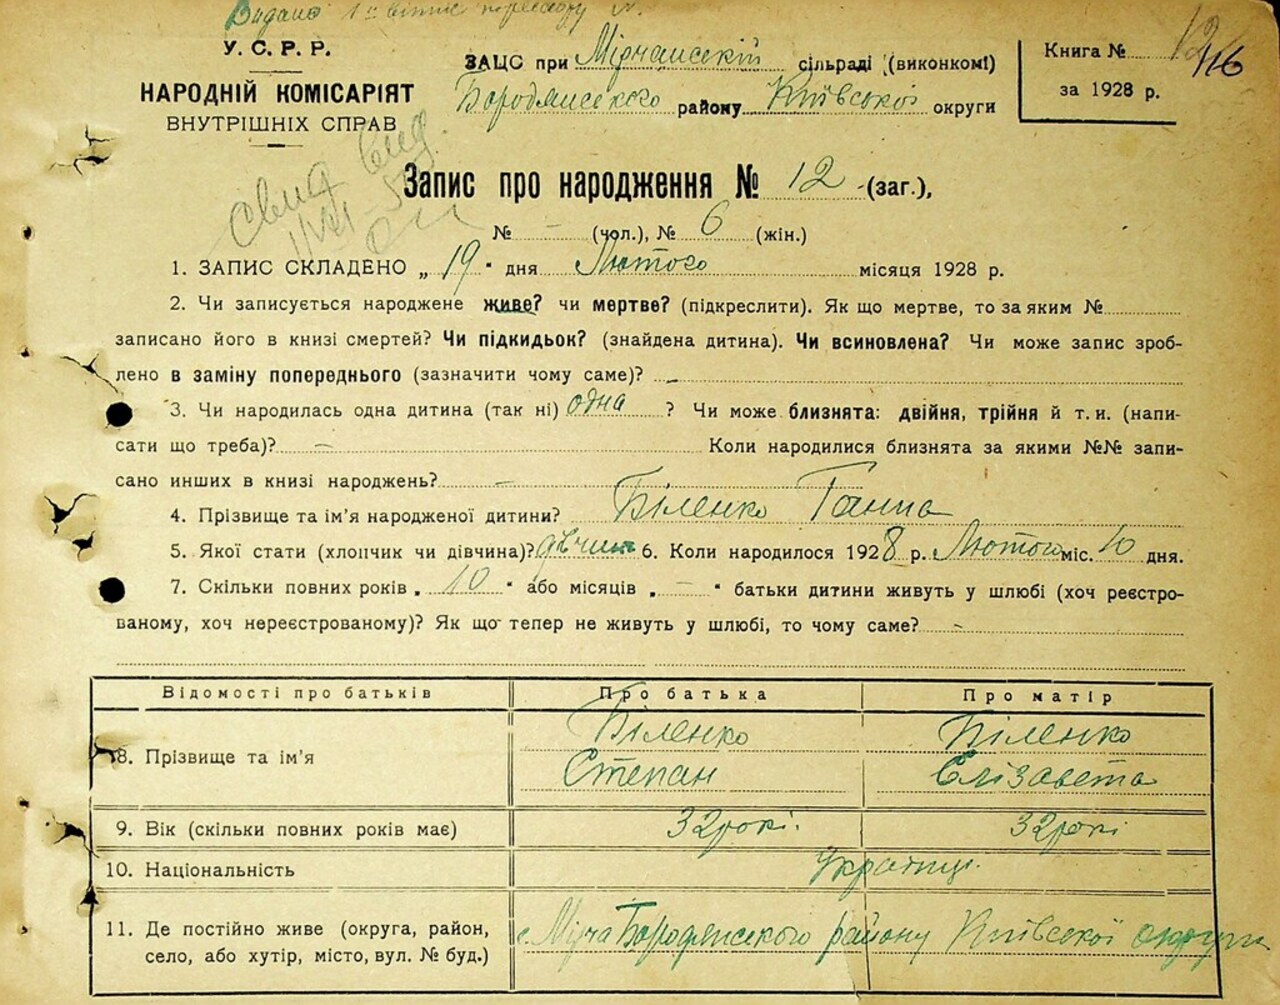 Видано 1
У. С. Р. Р.
НАРОДНІЙ КОМІСАРІЯТ
ВНУТРІШНІХ СПРАВ
ЗАЦС при Мірчанській сільраді (виконкомі)
Бородянського району Київської округи
Книга № 12 116
за 1928 р.
Запис про народження № 12 (заг.),
№ - (чол.), № 6 (жін.)
1. ЗАПИС СКЛАДЕНО „ 19 " дня Лютого місяця 1928 р.
2. Чи записується народжене живе? чи мертве? (підкреслити). Як що мертве, то за яким №
записано його в книзі смертей? Чи підкидьок? (знайдена дитина). Чи всиновлена? Чи може запис зроб-
лено в заміну попереднього (зазначити чому саме)? -
3. Чи народилась одна дитина (так ні) одна ? Чи може близнята: двійня, трійня й т. и. (напи-
сати що треба)? - Коли народилися близнята за якими №№ запи-
сано инших в книзі народжень? -
4. Прізвище та ім'я народженої дитини? Біленко Ганна
5. Якої стати (хлопчик чи дівчина)? дівчина 6. Коли народилося 1928 р. Лютого міс. 10 дня.
7. Скільки повних років „ 10 " або місяців „ - " батьки дитини живуть у шлюбі (хоч реєстро-
ваному, хоч нереєстрованому)? Як що тепер не живуть у шлюбі, то чому саме? -
Відомості про батьків Про батька Про матір
8. Прізвище та ім'я Біленко Степан Біленко Єлізавета
9. Вік (скільки повних років має) 32 рокі. 32 рокі
10. Національність Українці.
11. Де постійно живе (округа, район,
село, або хутір, місто, вул. № буд.)
с. Мірча Бородянського району Київської округи